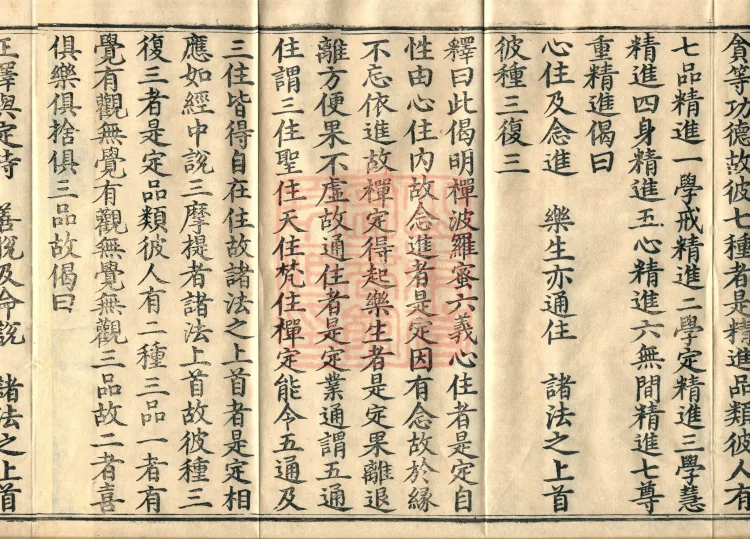 貪等功德故彼七種者是精進品類彼人有
七品精進一學戒精進二學定精進三學慧
精進四身精進五心精進六無間精進七尊
重精進偈曰
心住及念進　樂生亦通住　諸法之上首
彼種三復三
釋曰此偈明禪波羅蜜六義心住者是定自
性由心住內故念進者是定因有念故於緣
不忘依進故禪定得起樂生者是定果離退
離方便果不虛故通住者是定業通謂五通
住謂三住聖住天住梵住禪定能令五通及
三住皆得自在住故諸法之上首者是定相
應如經中說三摩提者諸法上首故彼種三
復三者是定品類彼人有二種三品一者有
覺有觀無覺有觀無覺無觀三品故二者喜
俱樂俱捨俱三品故偈曰
正擇與定持　善說及命說　諸法之上首